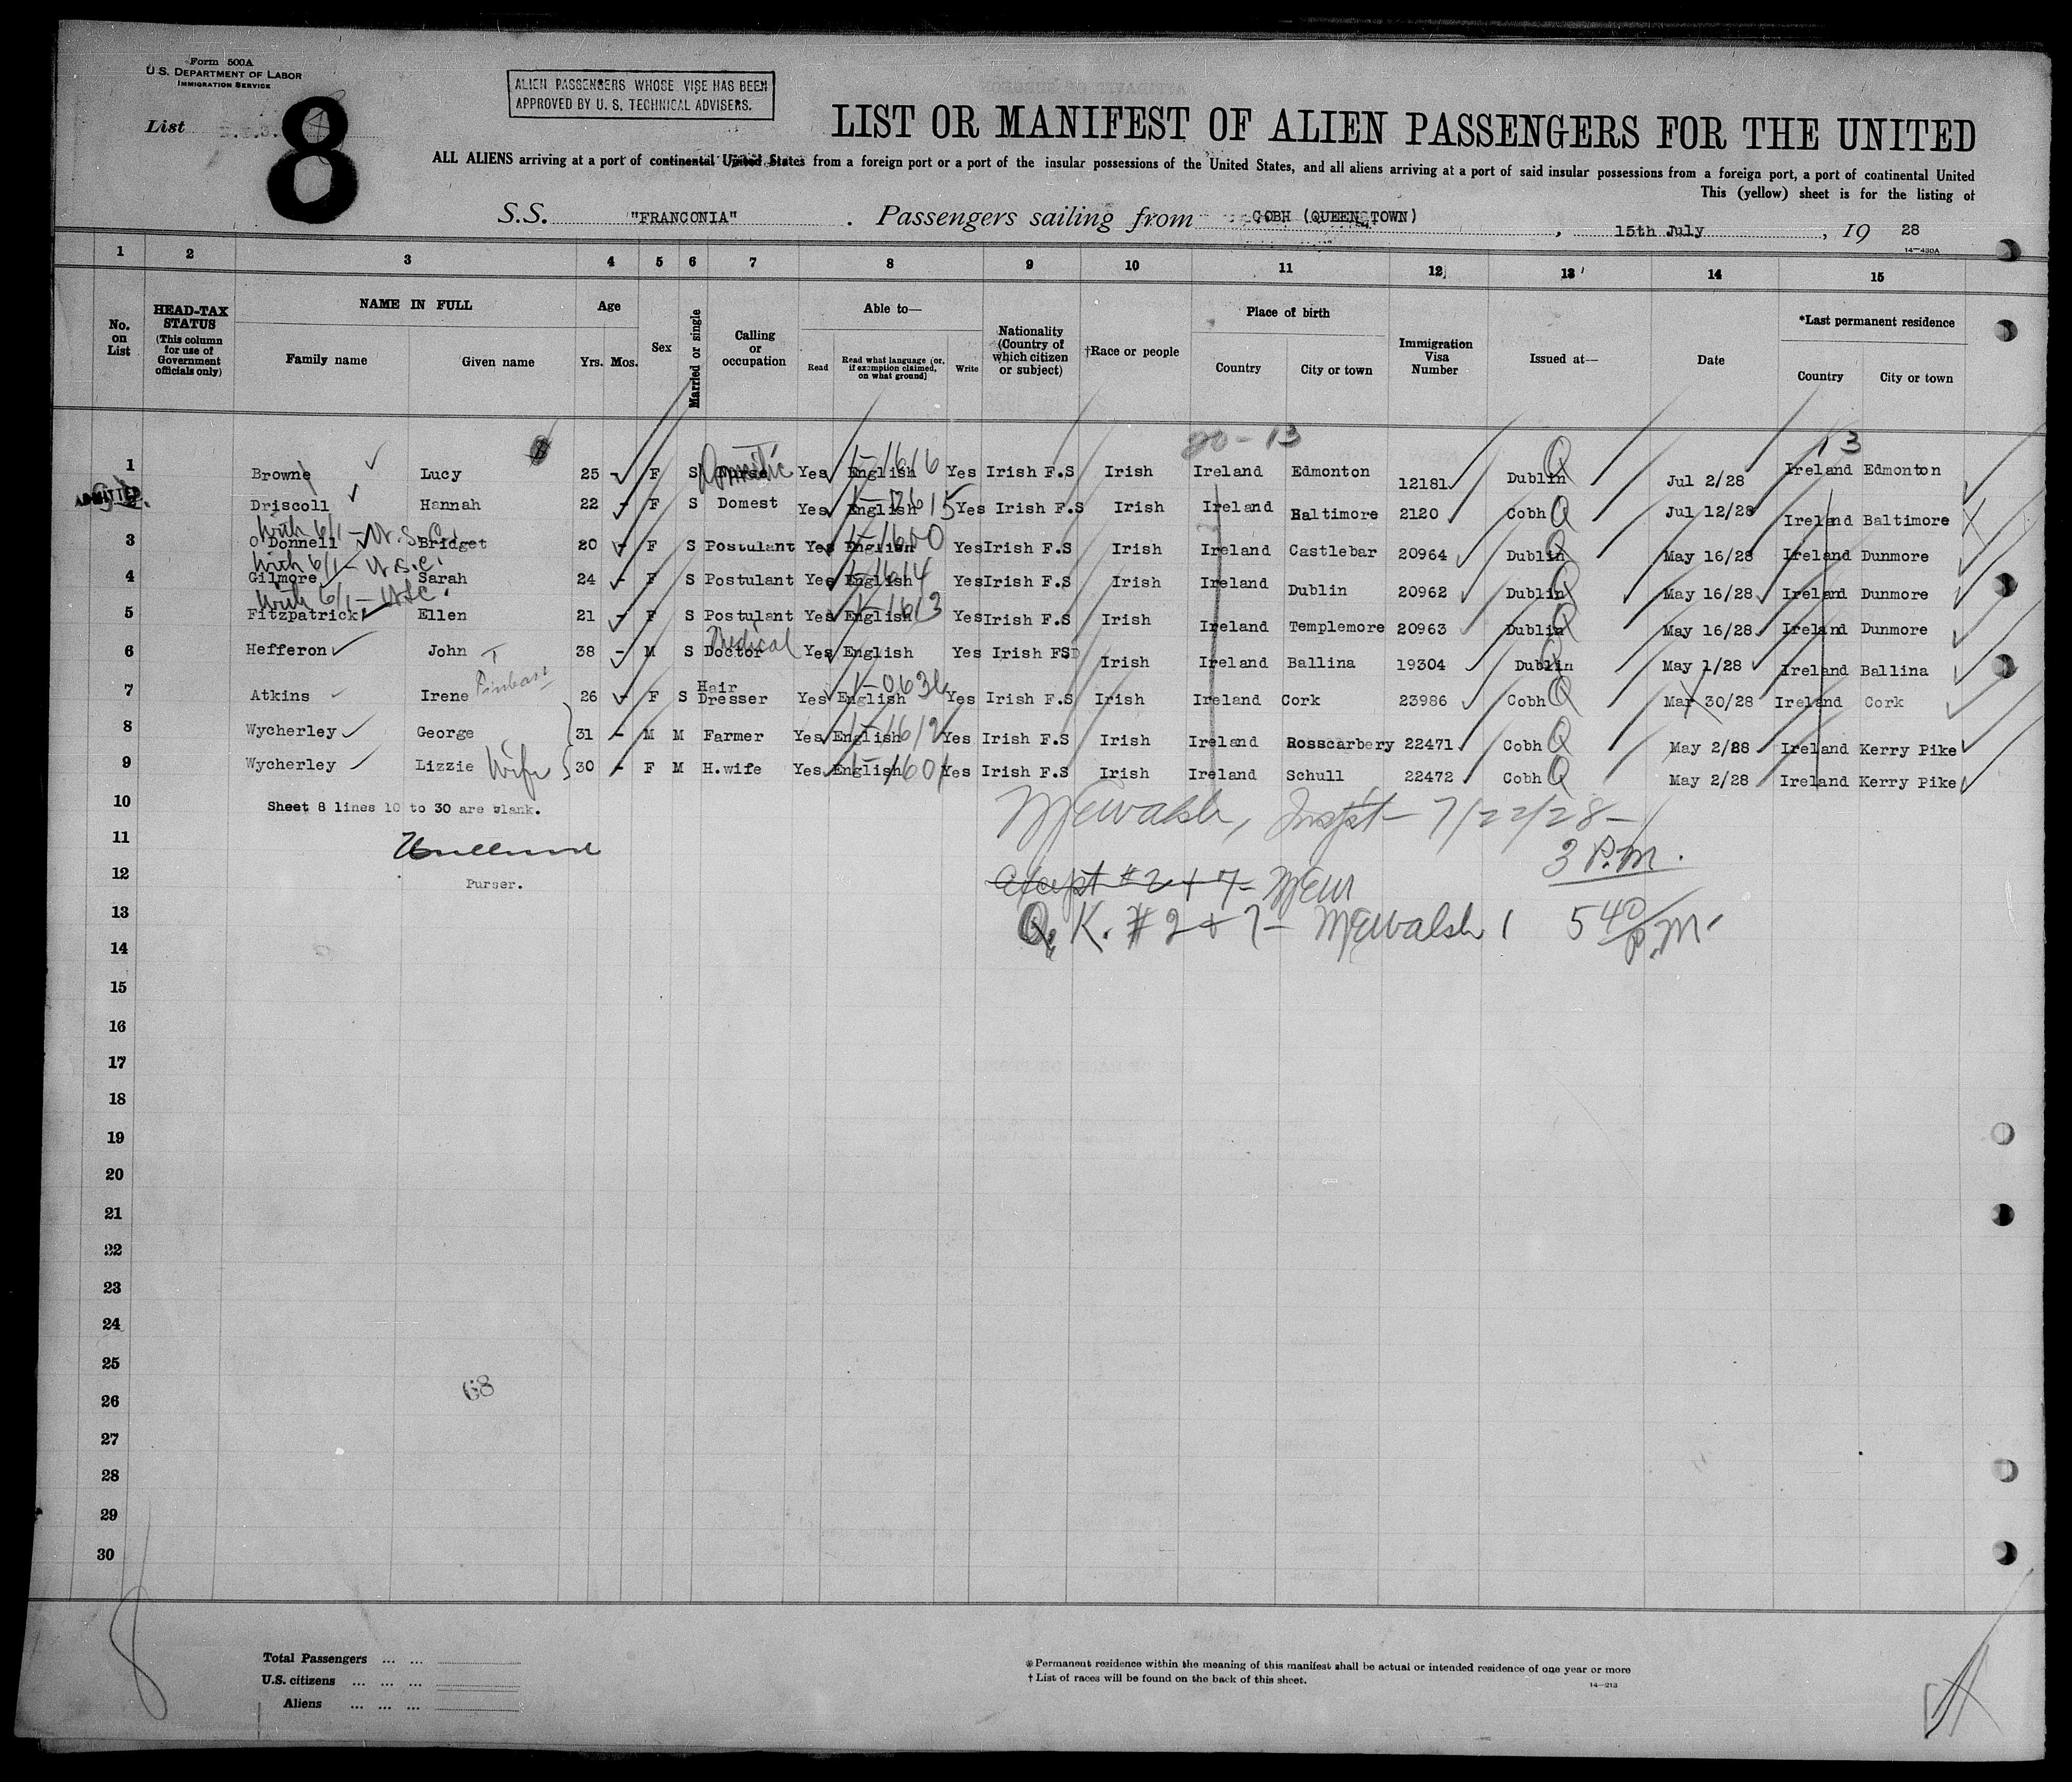 Form 500A
U.S. DEPARTMENT OF LABOR
IMMIGRATION SERVICE
List 8
ALIEN PASSENGERS WHOSE VISE HAS BEEN
APPROVED BY U. S. TECHNICAL ADVISERS.
LIST OR MANIFEST OF ALIEN PASSENGERS FOR THE UNITED
ALL ALIENS arriving at a port of continental United States from a foreign port or a port of the insular possessions of the United States, and all aliens arriving at a port of said insular possessions from a foreign port, a port of continental United
This (yellow) sheet is for the listing of
S.S. "FRANCONIA". Passengers sailing from COBH (QUEENSTOWN), 15th July, 19 28
14-430A
1 2 3 4 5 6 7 8 9 10 11 12 13 14 15
No. on List
HEAD-TAX STATUS (This column for use of Government officials only)
NAME IN FULL
Family name Given name
Age
Yrs. Mos.
Sex
Married or single
Calling or occupation
Able to—
Read Read what language [or, if exemption claimed, on what ground] Write
Nationality (Country of which citizen or subject)
†Race or people
Place of birth
Country City or town
Immigration Visa Number
Issued at—
Date
*Last permanent residence
Country City or town
20-13 13
1 Browne Lucy 25 - F S Nurse Domestic Yes English 1-1616 Yes Irish F.S Irish Ireland Edmonton 12181 Dublin Q Jul 2/28 Ireland Edmonton
ADMITTED
2 Driscoll Hannah 22 - F S Domest Yes English Yes Irish F.S Irish Ireland Baltimore 2120 Cobh Q Jul 12/28 Ireland Baltimore
With 6/1 -
3 O'Donnell Bridget 20 - F S Postulant Yes English 1-1600 Yes Irish F.S Irish Ireland Castlebar 20964 Dublin Q May 16/28 Ireland Dunmore
With 6/1 -
4 Gilmore Sarah 24 - F S Postulant Yes English 1-1614 Yes Irish F.S Irish Ireland Dublin 20962 Dublin Q May 16/28 Ireland Dunmore
With 6/1 -
5 Fitzpatrick Ellen 21 - F S Postulant Yes English 1-1613 Yes Irish F.S Irish Ireland Templemore 20963 Dublin Q May 16/28 Ireland Dunmore
6 Hefferon John 38 - M S Medical Doctor Yes English Yes Irish FSD Irish Ireland Ballina 19304 Dublin Q May 1/28 Ireland Ballina
7 Atkins Irene 26 - F S Hair Dresser Yes English Yes Irish F.S Irish Ireland Cork 23986 Cobh Q Mar 30/28 Ireland Cork
8 Wycherley George 31 - M M Farmer Yes English 1-1612 Yes Irish F.S Irish Ireland Rosscarbery 22471 Cobh Q May 2/28 Ireland Kerry Pike
9 Wycherley Lizzie Wife 30 - F M H.wife Yes English 1-1601 Yes Irish F.S Irish Ireland Schull 22472 Cobh Q May 2/28 Ireland Kerry Pike
10 Sheet 8 lines 10 to 30 are blank.
MEWalsh, Inspt- 7/22/28-
3 P.M.
11
Purser.
12 except #2 + 7- MEW
13 O.K. #2 + 7- MEWalsh 5 40 P.M.
14
15
16
17
18
19
20
21
22
23
24
25
68
26
27
28
29
30
8
Total Passengers ... ...
U.S. citizens ... ... ...
Aliens ... ... ...
*Permanent residence within the meaning of this manifest shall be actual or intended residence of one year or more
† List of races will be found on the back of this sheet.
14-213